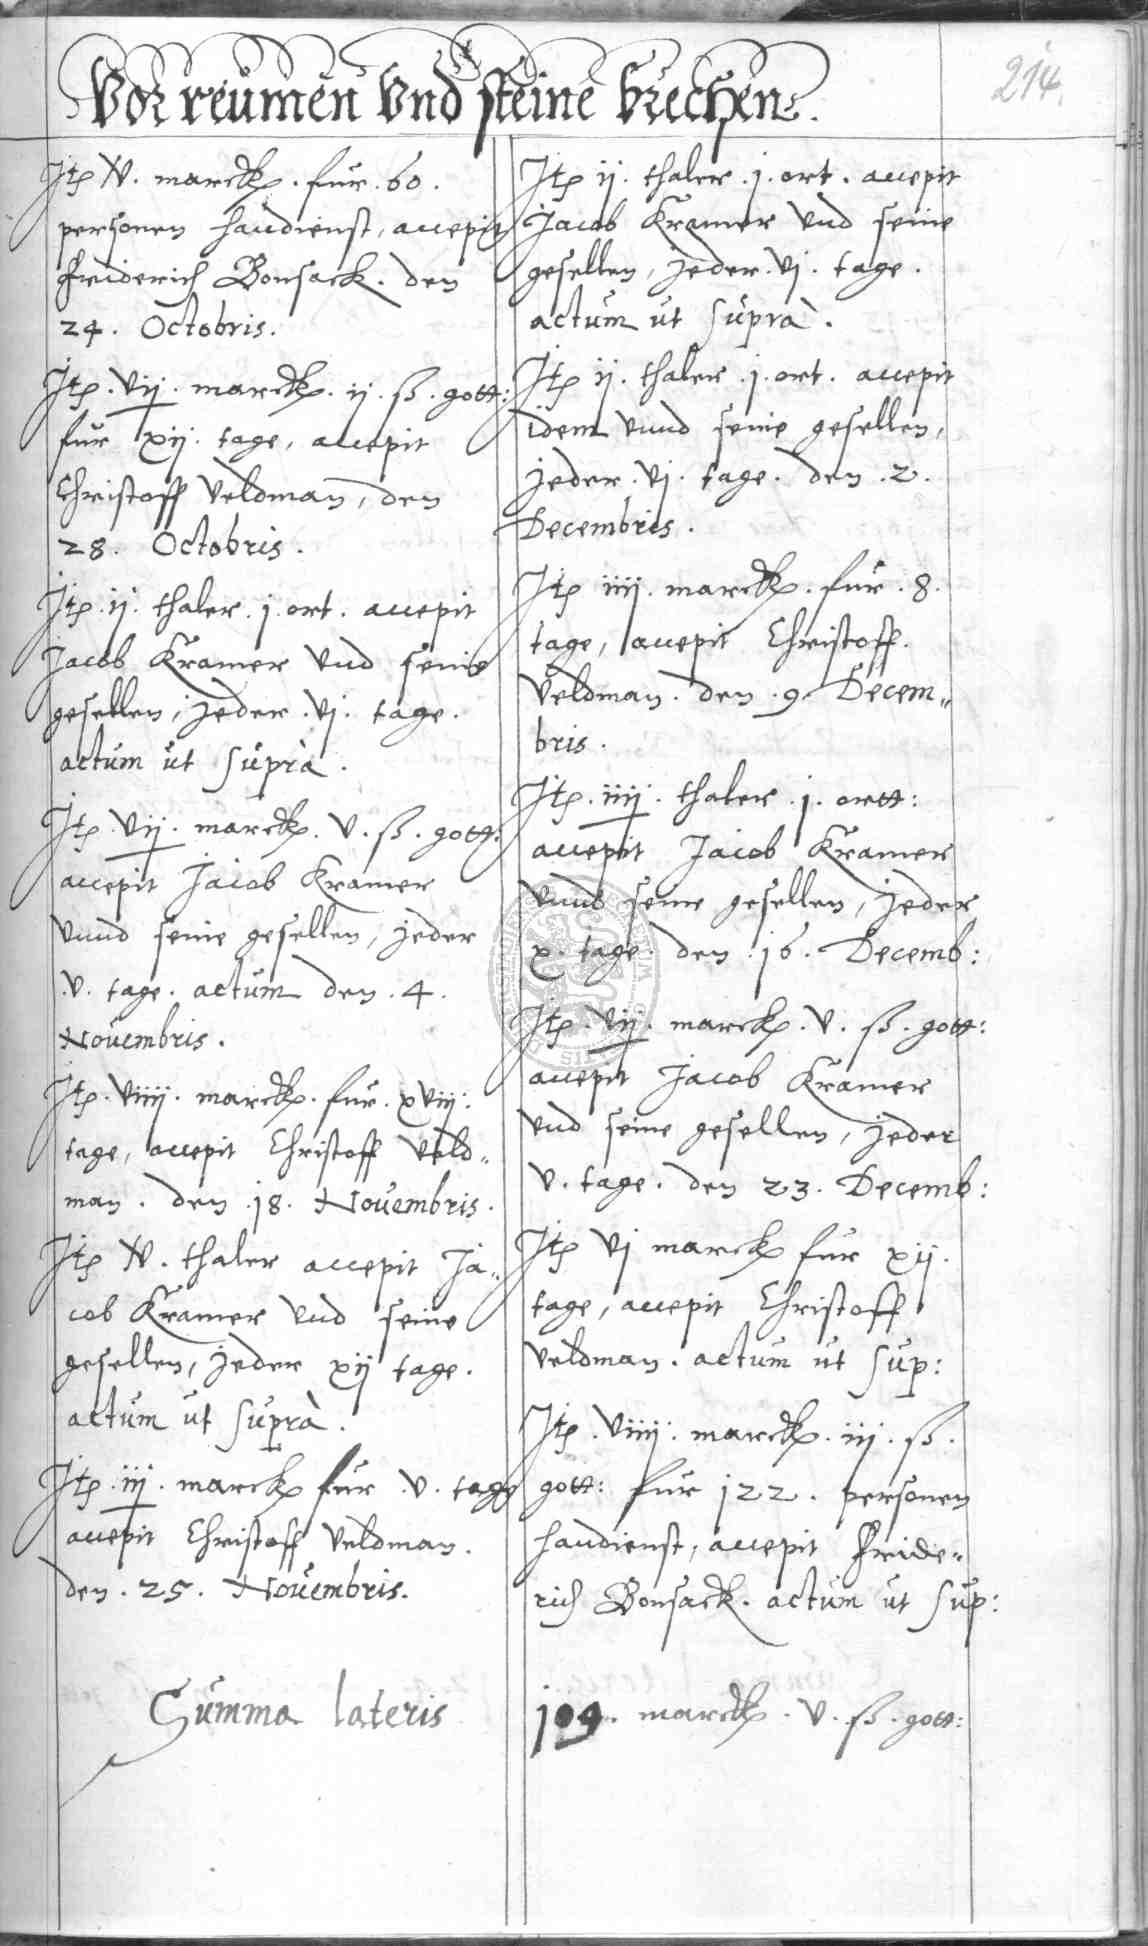 Vor reumen vnd steine brechen.
214.
Itē N. marck. fur. 60.
personen handienst, accepit
Friderich Bonsack. den
24. Octobris.
Itē. vij. marck. ij. ß. gott:
fur xij. tage, accepit
Christoff Veldman, den
28. Octobris.
Itē. ij. thaler. j. ort. accepit
Jacob Kramer vnd seine
gesellen, jeder. vj. tage.
actum ut suprà.
Itē. vij. marck. v. ß. gott:
accepit Jacob Kramer
vnnd seine gesellen, jeder
.v. tage. actum den. 4.
Nouembris.
Itē. viiij. marck. fur. xviij:
tage, accepit Christoff Veld„
man. den. j8. Nouembris.
Itē N. thaler accepit Ja„
cob Kramer vnd seine
gesellen, jeder xij tage.
actum ut suprà.
Itē. iij. marck fur. v. tage
accepit Christoff Veldman.
den. 25. Nouembris.
Itē ij. thaler. j. ort. accepit
Jacob Kramer vnd seine
gesellen, jeder. vj. tage.
actum ut suprà.
Itē ij. thaler. j. ort. accepit
idem vnnd seine gesellen,
jeder. vj. tage. den. 2.
Decembris.
Itē iiij. marck. fur. 8.
tage, accepit Christoff.
Veldman. den. 9. Decem„
bris.
Itē. iiij. thaler. j. ortt:
accepit Jacob Kramer
vnnd seine gesellen, jeder
x. tage. den. j6. Decemb:
Itē. vij. marck. v. ß. gott:
accepit Jacob Kramer
vnd seine gesellen, jeder
v. tage. den 23. Decemb:
Itē vj marck fur xij.
tage, accepit Christoff
Veldman. actum ut sup:
Itē. viiij. marck. iij. ß.
gott: fur j22. personen
handienst, accepit Fride„
rich Bonsack. actum ut sup:
Summa lateris j04. marck. v. ß. gott: